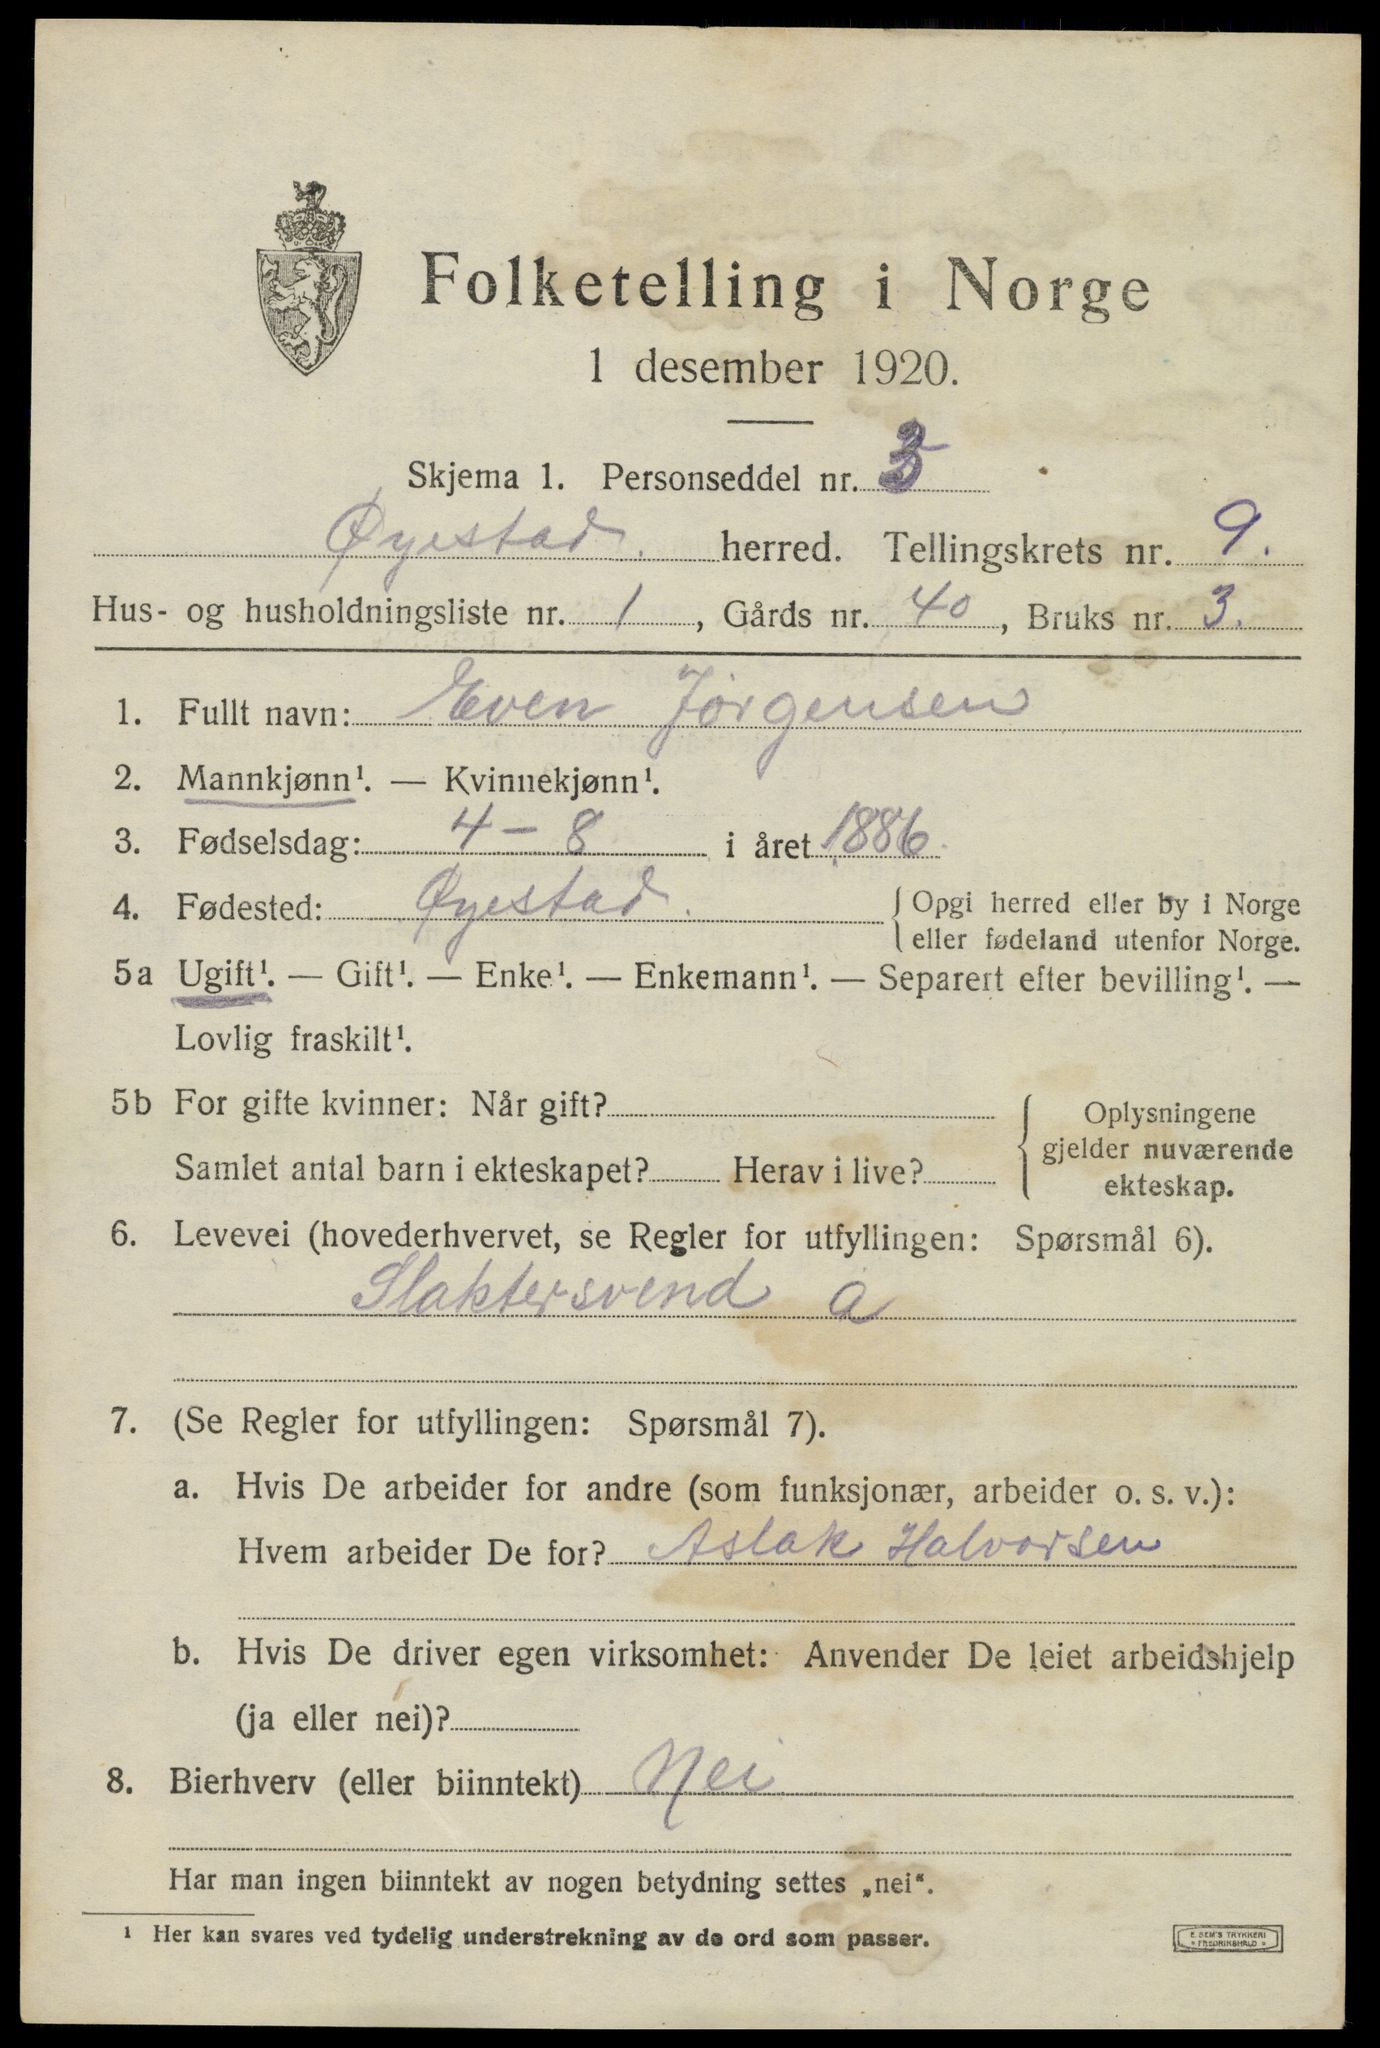 Folketelling i Norge
1 desember 1920.
Skjema 1. Personseddel nr. 3
Øyestad. herred. Tellingskrets nr. 9.
Hus- og husholdningsliste nr. 1, Gårds nr. 40, Bruks nr. 3.
1. Fullt navn: Even Jørgensen
2. Mannkjønn¹. — Kvinnekjønn¹.
3. Fødselsdag: 4 – 8 i året 1886.
4. Fødested: Øyestad. { Opgi herred eller by i Norge
eller fødeland utenfor Norge.
5a Ugift¹. — Gift¹. — Enke¹. — Enkemann¹. — Separert efter bevilling¹. —
Lovlig fraskilt¹.
5b For gifte kvinner: Når gift?
Samlet antal barn i ekteskapet? Herav i live?
{ Oplysningene
gjelder nuværende
ekteskap.
6. Levevei (hovederhvervet, se Regler for utfyllingen: Spørsmål 6).
Slaktersvend a
7. (Se Regler for utfyllingen: Spørsmål 7).
a. Hvis De arbeider for andre (som funksjonær, arbeider o. s. v.):
Hvem arbeider De for? Aslak Halvorsen
b. Hvis De driver egen virksomhet: Anvender De leiet arbeidshjelp
(ja eller nei)?
8. Bierhverv (eller biinntekt) Nei
Har man ingen biinntekt av nogen betydning settes „nei“.
¹ Her kan svares ved tydelig understrekning av de ord som passer.
E. SEM'S TRYKKERI
FREDRIKSHALD